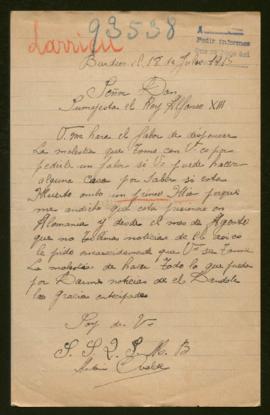 93538
Larrieu
Pedir informes
Burdeos el 18 de Julio 1915
Señor Don
Sumajesta el Rey Alfonso XIII
V. me hara el fabor de dispensar
la molestia que tomo con Vs es para
pedirle un fabor si Vs puede hacer
alguna cosa por saber si esta
Muerto un primo
me an dicho que esta prisionero en
Alemania y desde el mes de Agosto
que no noticias de el asi es
le pido encarecidamente que Vs se tome
la molestia de hacer todo lo que pueda
por Darme noticias de el Dandole
las gracias anticipadas
Soy de Vs
S. S. Q. S. M. B